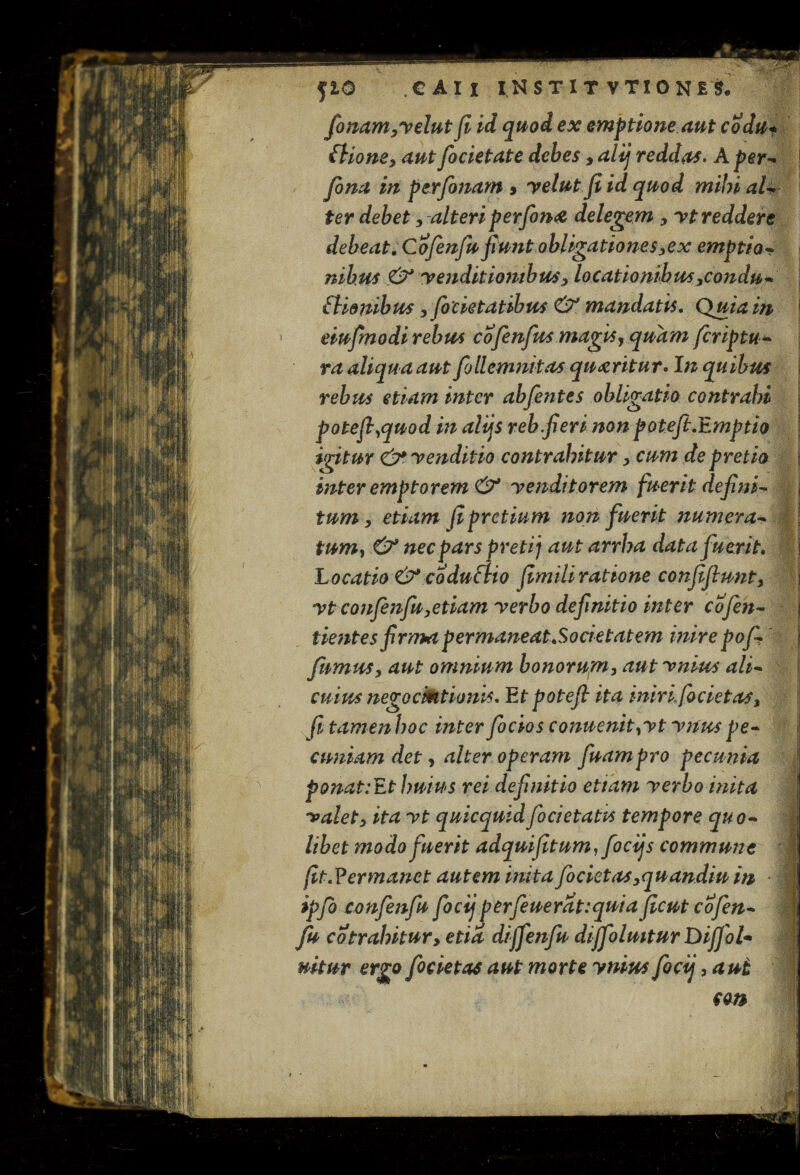 520 CAII INSTITVTIONES.
ſonam,velut ſi id quod ex emptione aut cōdu-
ctione, aut ſocietate debes, alij reddas. A per-
ſona in perſonam, velut ſi id quod mihi al-
ter debet, alteri perſonæ delegem, vt reddere
debeat. Cōſenſu fiunt obligationes,ex emptio-
nibus & venditionibus, locationibus,condu-
ctionibus, ſocietatibus & mandatis. Quia in
eiuſmodi rebus cōſenſus magis, quàm ſcriptu-
ra aliqua aut ſollemnitas quæritur. In quibus
rebus etiam inter abſentes obligatio contrahi
poteſt,quod in alijs reb.fieri non poteſt.Emptio
igitur & venditio contrahitur, cum de pretio
inter emptorem & venditorem fuerit defini-
tum, etiam ſi pretium non fuerit numera-
tum, & nec pars pretij aut arrha data fuerit.
Locatio & cōductio ſimili ratione conſiſtunt,
vt conſenſu,etiam verbo definitio inter cōſen-
tientes firma permaneat.Societatem inire poſ-
ſumus, aut omnium bonorum, aut vnius ali-
cuius negociationis. Et poteſt ita iniri ſocietas,
ſi tamen hoc inter ſocios conuenit,vt vnus pe-
cuniam det, alter operam ſuam pro pecunia
ponat:Et huius rei definitio etiam verbo inita
valet, ita vt quicquid ſocietatis tempore quo-
libet modo fuerit adquiſitum, ſocijs commune
ſit.Permanet autem inita ſocietas,quandiu in
ipſo conſenſu ſocij perſeuerāt:quia ſicut cōſen-
ſu cōtrahitur, etiā diſſenſu diſſoluitur Diſſol-
uitur ergo ſocietas aut morte vnius ſocij, aut
con